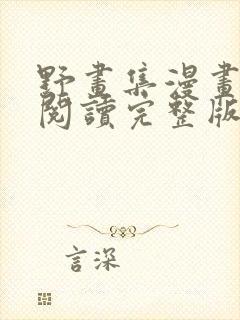 野畫集漫畫
閱讀完整版
言深